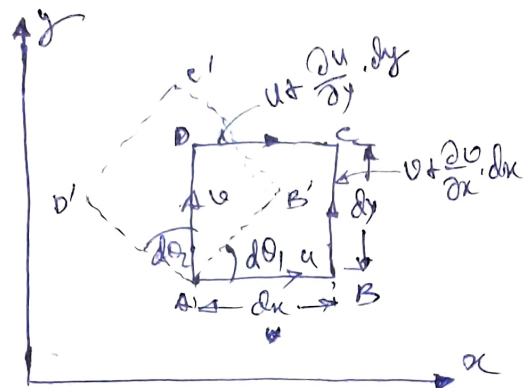 y
C'
u + ∂u/∂y . dy
D
C
υ + ∂υ/∂x . dx
D'
υ
B'
dy
dθ2
dθ1
u
A
dx
B
x